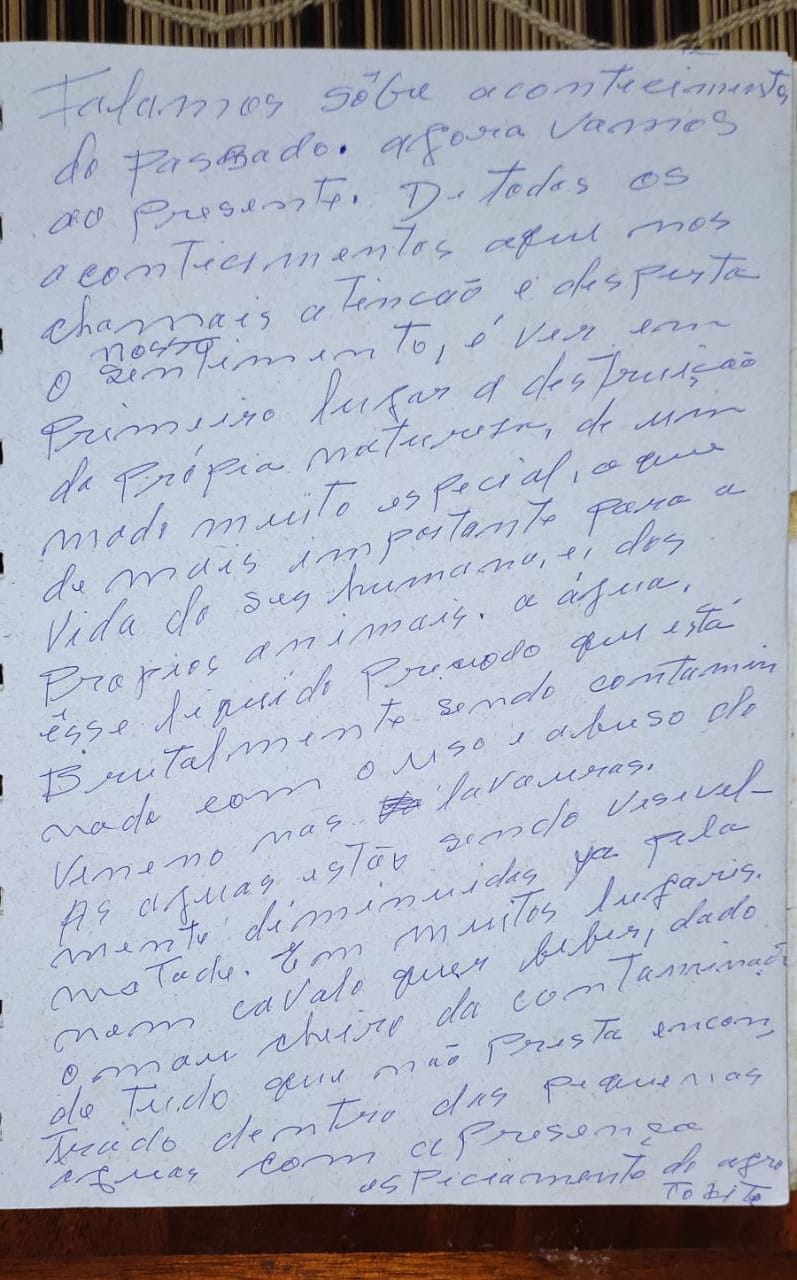 Falamos sôbre acontecimentos
do passado. agora vamos
ao presente. De todos os
acontecimentos aqui nos
chamais atencão e desperta
nosso
o sentimento, é ver em
primeiro lugar a destruição
da própia natureza, de um
modo muito especial, o que
de mais importante para a
vida do ser humano, e, dos
propios animais. a água,
êsse liquido preciodo que está
Brutalmente sendo contamin
nado com o uso e abuso do
veneno nas lavauras.
As aguas estão sendo visivel-
mente diminuidas ja pela
metade. Em muitos lugaris.
nem cavalo quer beber, dado
o mau cheiro da contaminação
de tudo que não presta encon,
trado dentro das pequenas
aguas com a presença
espiciamento do agro
toxito